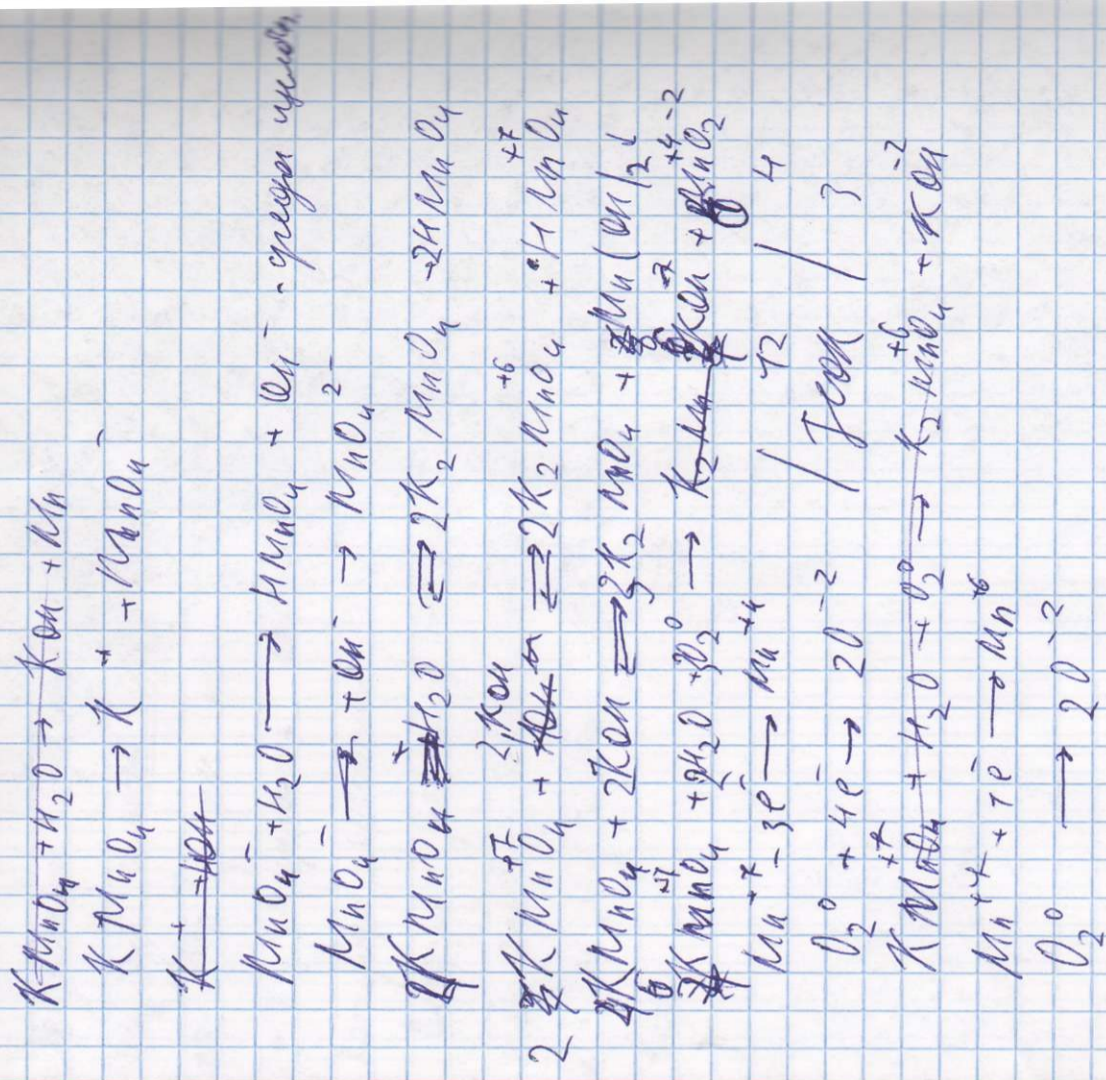 KMnO₄ + H₂O → KOH + Mn
KMnO₄ → K⁺ + MnO₄⁻
K⁺ + HOH
MnO₄⁻ + H₂O → HMnO₄ + OH⁻ - среда щелочн.
MnO₄⁻ → + OH⁻ → MnO₄²⁻
2KMnO₄ + H₂O ⇄ 2K₂MnO₄ + 2HMnO₄
2KMn⁺⁷O₄ + 2KOH ⇄ 2K₂Mn⁺⁶O₄ + HMn⁺⁷O₄
4KMnO₄ + 2KOH ⇄ 3K₂MnO₄ + Mn(OH)₂↓
KMn⁺⁷O₄ + 2H₂O + 3O₂⁰ → K₂Mn KOH⁻² + Mn⁺⁴O₂⁻²
Mn⁺⁷ - 3e⁻ → Mn⁺⁴ / 12 / 4
O₂⁰ + 4e⁻ → 2O⁻² / / 3
KMn⁺⁷O₄ + H₂O + O₂⁰ → K₂Mn⁺⁶O₄ + KOH⁻²
Mn⁺⁷ + 1e⁻ → Mn⁺⁶
O₂⁰ → 2O⁻²